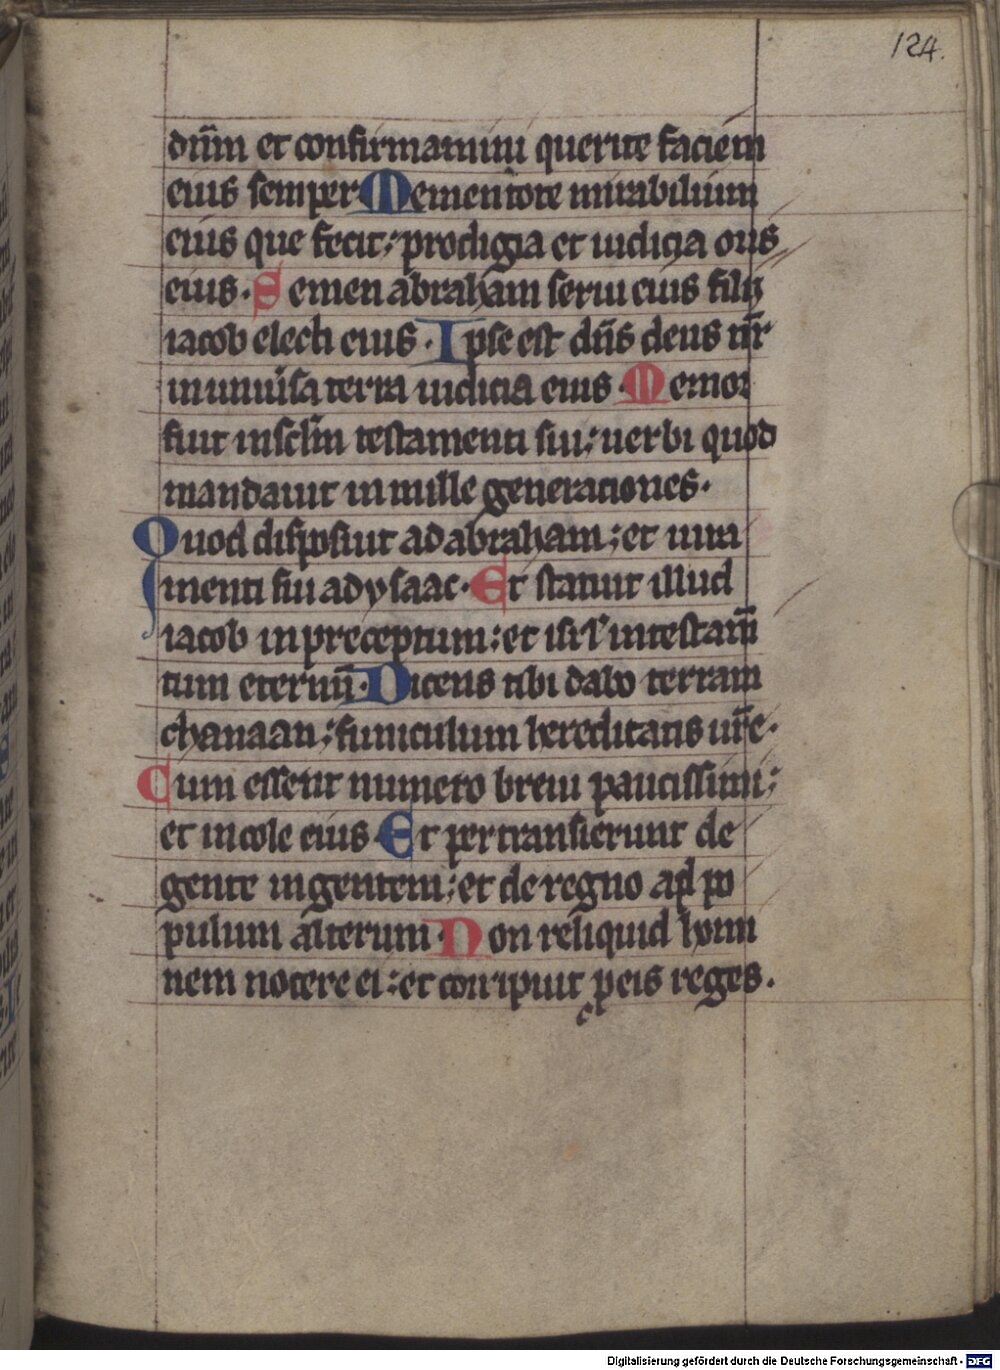 124.
dnm̄ et confirmamini querite faciem
eius semper Mementote mirabilium
eius que fecit; prodigia et iudicia oris
eius. Semen abraham serui eius filij
iacob electi eius. Ipse est dn̄s deus nr̄
inuniu͛sa terra iudicia eius. Memor
fuit insclm̄ testamenti sui; uerbi quod
mandauit in mille generationes.
Quod disposuit ad abraham; et iura
menti sui ad ysaac. Et statuit illud
iacob in preceptum; et isrl̄ in testam̄
tum eternū. Dicens tibi dabo terram
chanaan; funiculum hereditatis ur̄e.
Cum essent numero breui paucissimi;
et incole eius Et pertransierunt de
gente in gentem; et de regno ad po
pulum alterum. Non reliquid homi
nem nocere ei; et corripuit p eis reges.
Digitalisierung gefördert durch die Deutsche Forschungsgemeinschaft - DFG